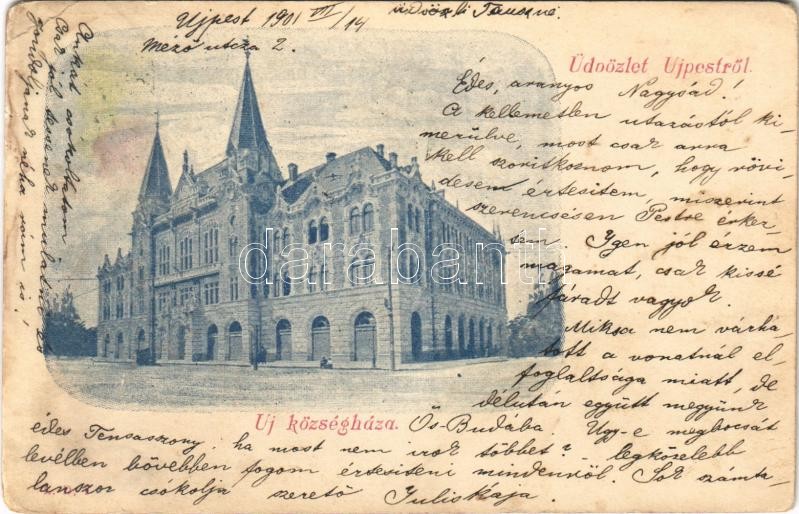 Ujpest 1901 VII/14
üdvözli
Mező utcza 2.
Üdvözlet Ujpestről.
Édes, aranyos Nagysád!
A kellemetlen utazástól ki-
merülve, most csak arra
kell szoritkoznom, hogy rövi-
desen értesitem, miszerint
szerencsésen Pestre érkez-
tem. Igen jól érzem
magamat, csak kissé
fáradt vagyok.
Miksa nem várha-
tott a vonatnál el-
foglaltsága miatt, de
délután együtt megyünk
Ős-Budába Ugy-e megbocsát
édes Tensasszony, ha most nem irok többet? legközelebb
levélben bővebben fogom értesiteni mindenről. Sok számta-
lanszor csókolja szerető Juliskája.
Uj községháza.
Ankát csókoltatom
gondoljanak néha rám is!
darabanth.com